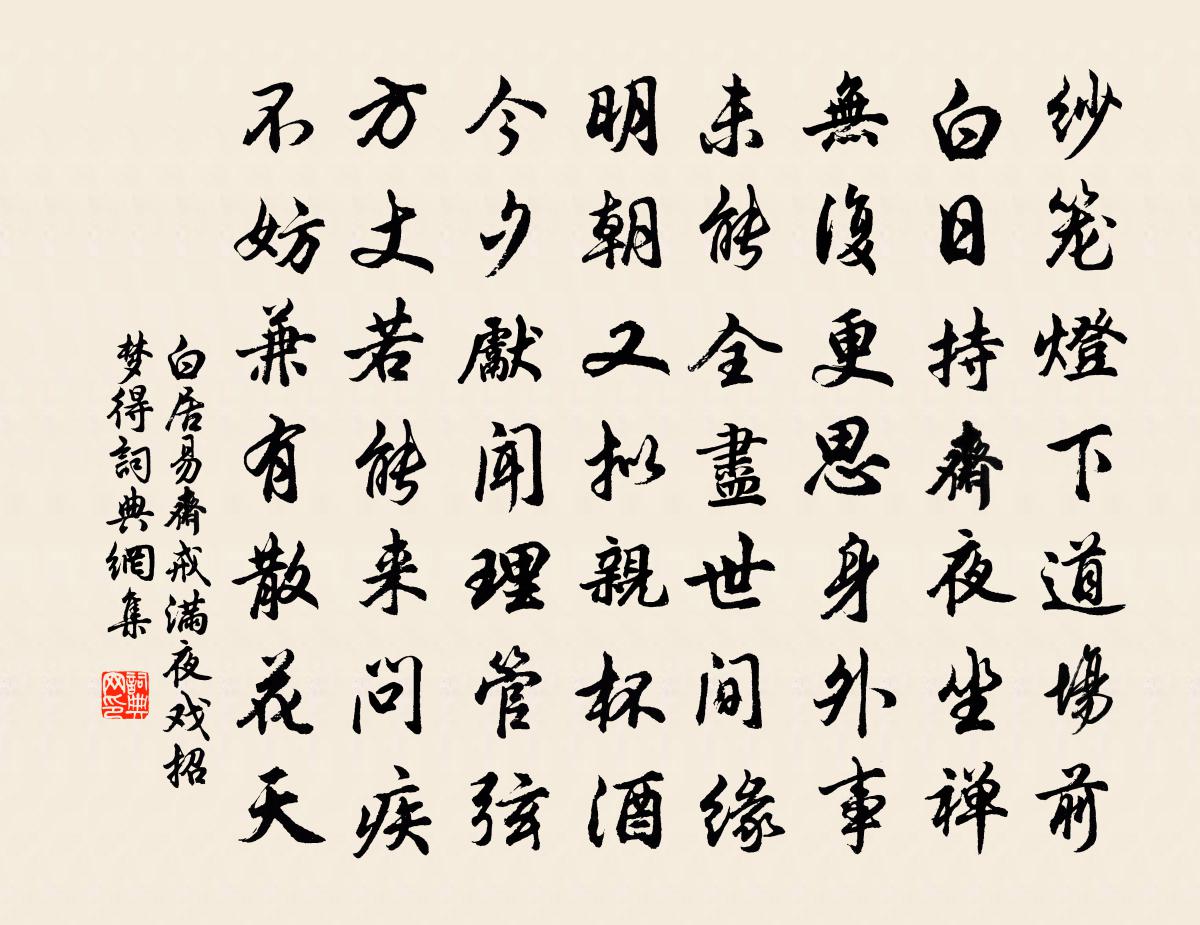 纱笼燈下道場前
白日持齋夜坐禅
無復更思身外事
未能全盡世间緣
明朝又拟親杯酒
今夕獻闻理管弦
方丈若能来问疾
不妨兼有散花天
白居易齋戒满夜戏招
梦得詞典網集
詞典
网印